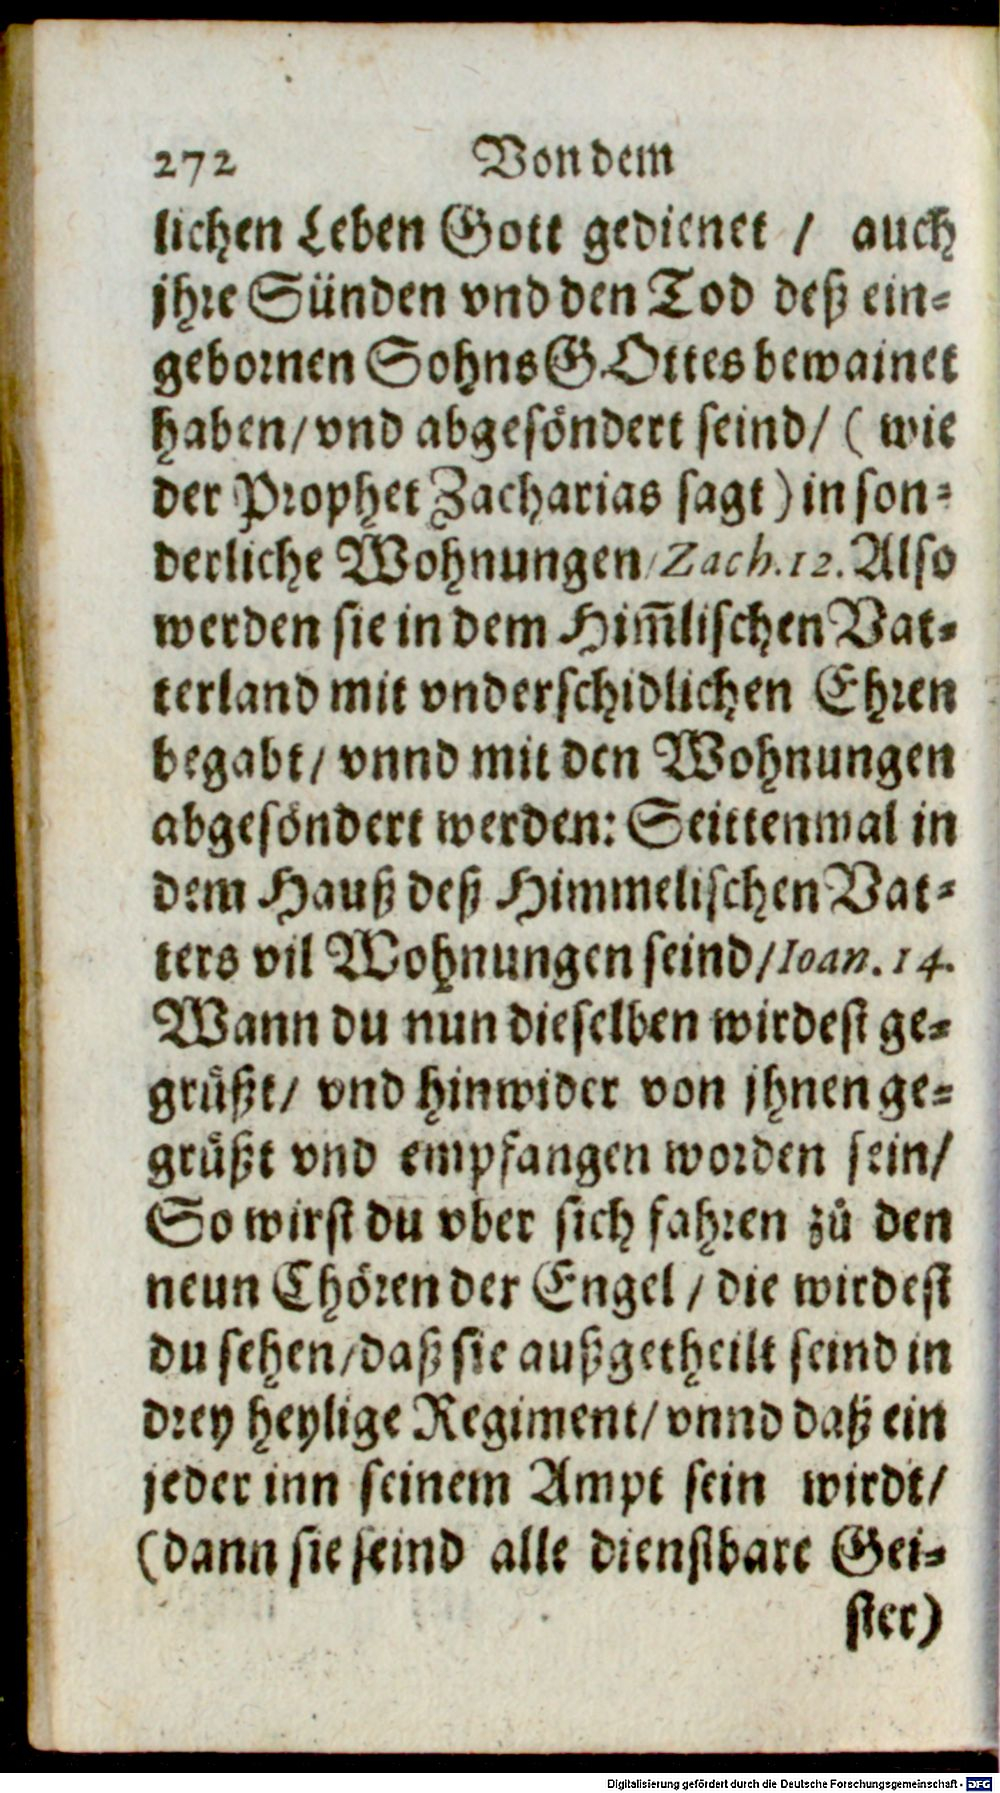 272 Von dem
lichen Leben Gott gedienet / auch
jhre Sünden vnd den Tod deß ein⸗
gebornen Sohns GOttes bewainet
haben/ vnd abgesöndert seind/ ( wie
der Prophet Zacharias sagt) in son⸗
derliche Wohnungen/ Zach. 12. Also
werden sie in dem Him̄lischen Vat⸗
terland mit vnderschidlichen Ehren
begabt/ vnnd mit den Wohnungen
abgesöndert werden: Seittenmal in
dem Hauß deß Himmelischen Vat⸗
ters vil Wohnungen seind/ Ioan. 14.
Wann du nun dieselben wirdest ge⸗
grüßt/ vnd hinwider von jhnen ge⸗
grüßt vnd empfangen worden sein/
So wirst du vber sich fahren zů den
neun Chören der Engel / die wirdest
du sehen/ daß sie außgetheilt seind in
drey heylige Regiment/ vnnd daß ein
jeder inn seinem Ampt sein wirdt/
(dann sie seind alle dienstbare Gei⸗
ster)
Digitalisierung gefördert durch die Deutsche Forschungsgemeinschaft - DFG